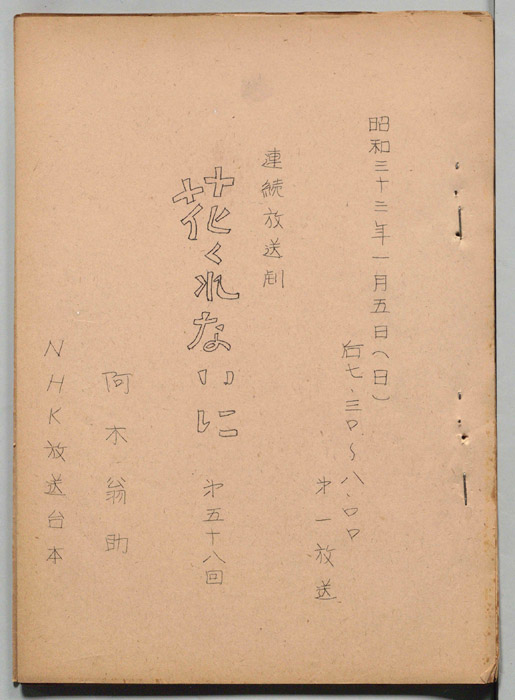 昭和三十三年一月五日（日）
后七、三〇〜八、〇〇
才一放送
連続放送劇
花くれないに
才五十八回
阿木翁助
NHK放送台本